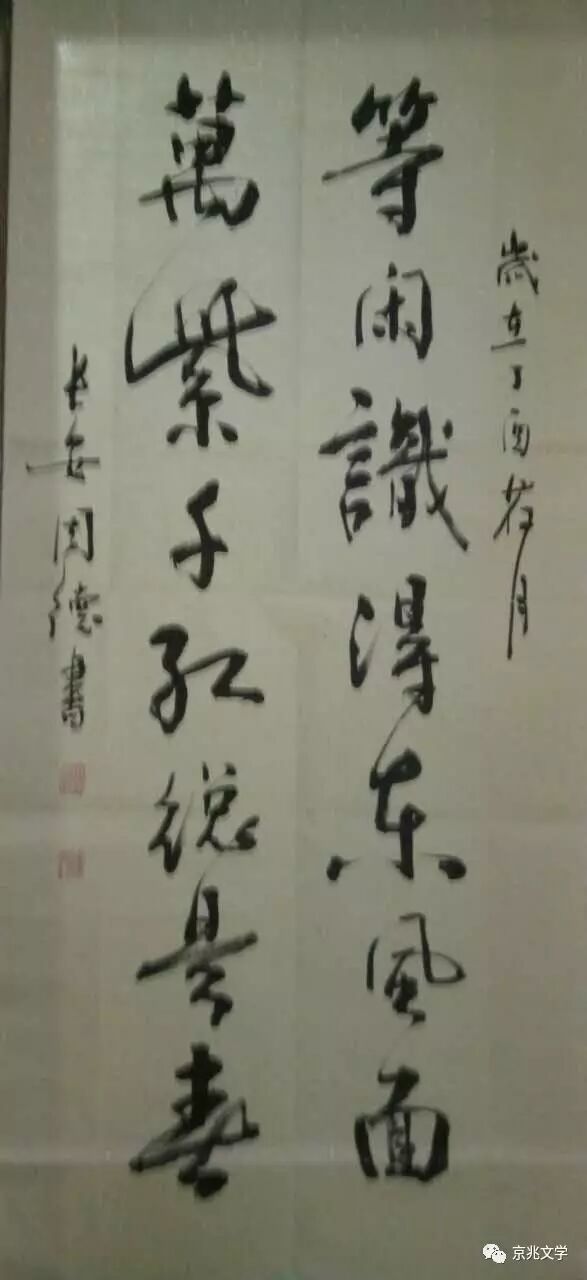 歲在丁酉荷月
等閑識得东風面
萬紫千紅總是春
长安周德書
京兆文学